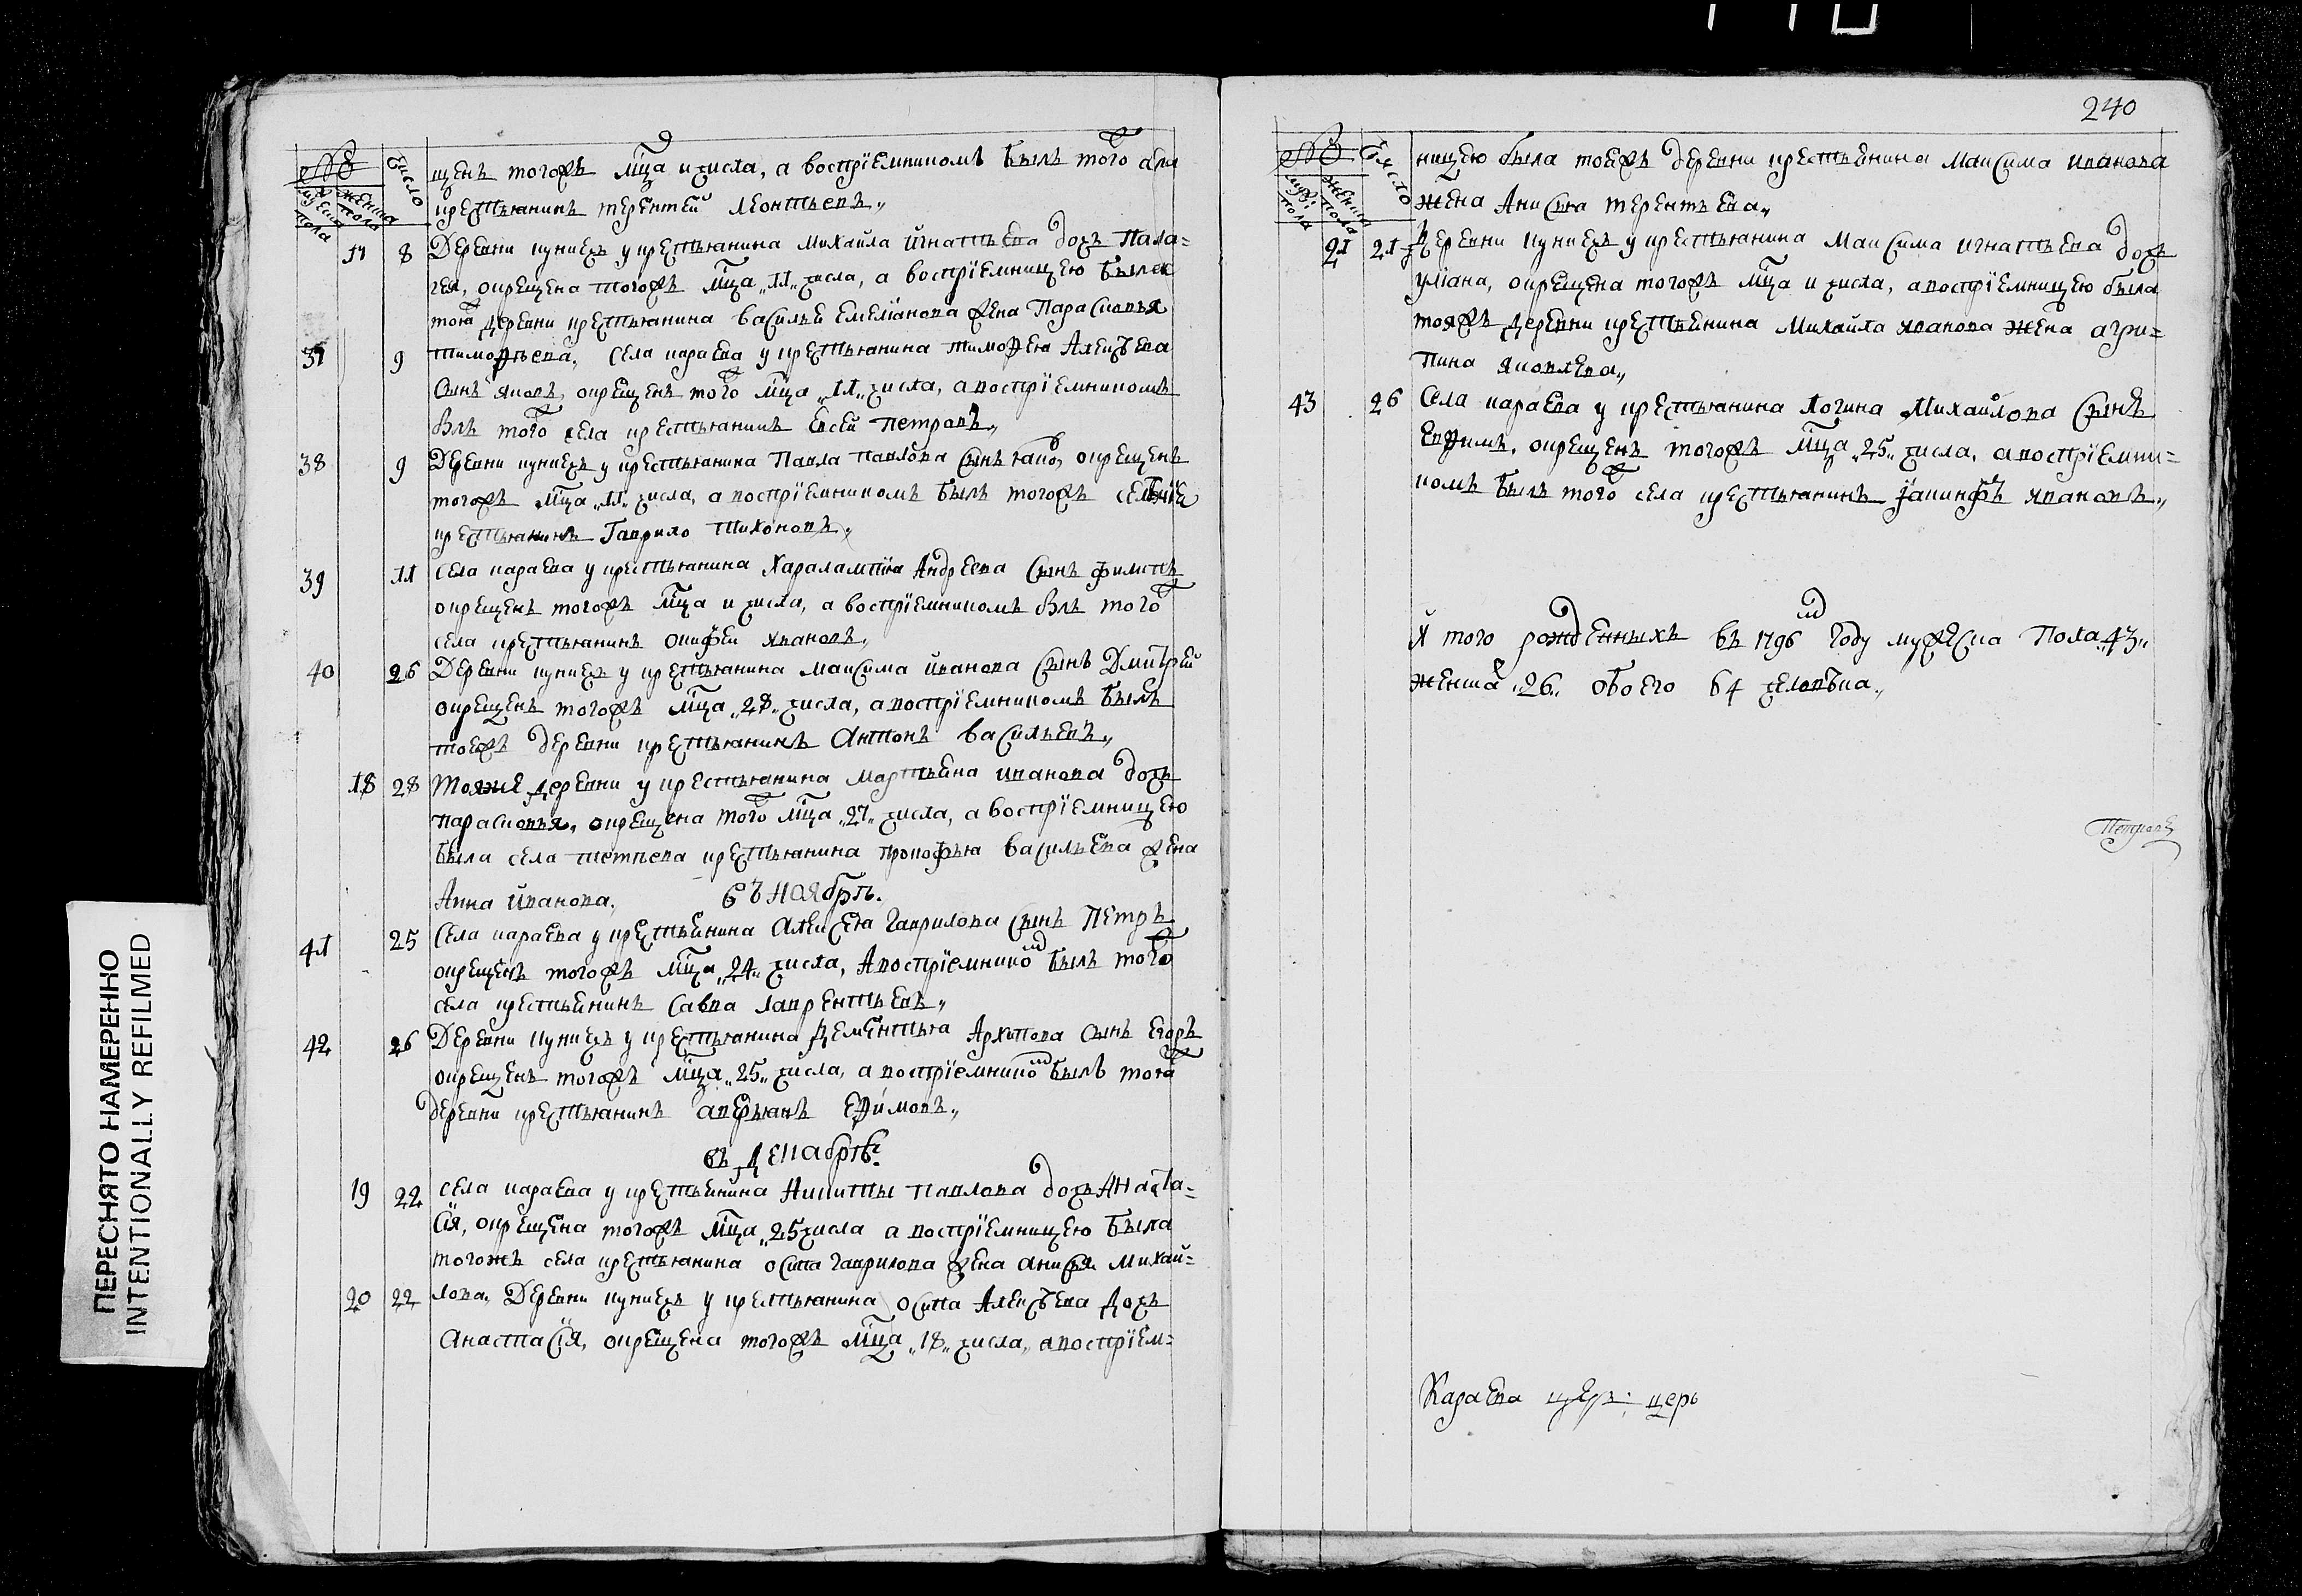 240
№
Число
мужеска пола
женска пола
щенъ тогожъ мца и числа, а восприемникомъ былъ тогож села
крестьянинъ терентей Леонтьевъ,,
17 8 Деревни кунихъ у крестьянина Михайла игнатьева дочь Пала=
гея, окрещена тогожъ мца „11„ числа, а восприемницею была
тояж деревни крестьянина василья емелїанова жена Парасковья
37 9 тимофѣева, Села караева у крестьянина тимофея Алексѣева
сынъ яковъ, окрещенъ того ж мца „11„ числа, а восприемникомъ
былъ того ж села крестьянинъ Евсей Петровъ,,
38 9 Деревни кунихъ у крестьянина Павла Павлова сынъ яков, окрещенъ
тогожъ мца „11„ числа, а восприемникомъ былъ тогожъ
крестьянинъ Гаврило Тихоновъ,,
39 11 Села караева у крестьянина Харалампїя Андреева сынъ филипъ
окрещенъ тогожъ мца и числа, а восприемникомъ былъ того ж
села крестьянинъ онифей ивановъ,
40 26 Деревни кунихъ у крестьянина максима иванова сынъ Дмитрей
окрещенъ тогожъ мца „28„ числа, а восприемникомъ былъ
тоежъ деревни крестьянинъ Антонъ васильевъ,,
18 28 Тояже деревни у крестьянина мартьяна иванова дочь
парасковья, окрещена того ж мца „27„ числа, а восприемницею
была села крестьянина прокофья васильева жена
Анна иванова, въ ноябрѣ.
41 25 Села караева у крестьянина Алексея гаврилова сынъ Петръ
окрещенъ тогожъ мца „24„ числа, а восприемником былъ того ж
села крестьянинъ Савва лаврентьевъ,,
42 26 Деревни кунихъ у крестьянина Дементья Архипова сынъ Егоръ
окрещенъ тогожъ мца „25„ числа, а восприемником былъ тояж
деревни крестьянинъ аверьянъ Ефимовъ,,
въ декабрѣ.
19 22 Села караева у крестьянина Никиты павлова дочь Анаста=
сїя, окрещена тогожъ мца „25 числа а восприемницею была
тогожъ села крестьянина осипа гаврилова жена анисья Михай=
20 22 лова, Деревни кунихъ у крестьянина осипа Алексѣева дочь
Анастасїя, окрещена тогожъ мца „18„ числа, а восприем=
№
Число
муж: пола
женска пола
ницею была тоежъ деревни крестьянина максима иванова
жена Анисья терентьева,,
21 21 Деревни кунихъ у крестьянина максима игнатьева дочь
улїана, окрещена тогожъ мца и числа, а восприемницею была
тояжъ деревни крестьянина Михайла иванова жена агри=
пина яковлева,,
43 26 Села караева у крестьянина логина Михайлова сынъ
Ефимъ, окрещенъ тогожъ мца „25„ числа, а восприемни=
комъ былъ того ж села крестьянинъ їакинфъ ивановъ,,
И того рожденныхъ въ 1796м году мужеска Пола „43„
женска „26„ обоего 64 человѣка,,
Петровъ
Караева церк: церь
ПЕРЕСНЯТО НАМЕРЕННО
INTENTIONALLY REFILMED